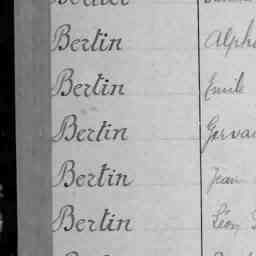 Bertin
Bertin Emile
Bertin
Bertin Jean
Bertin Léon